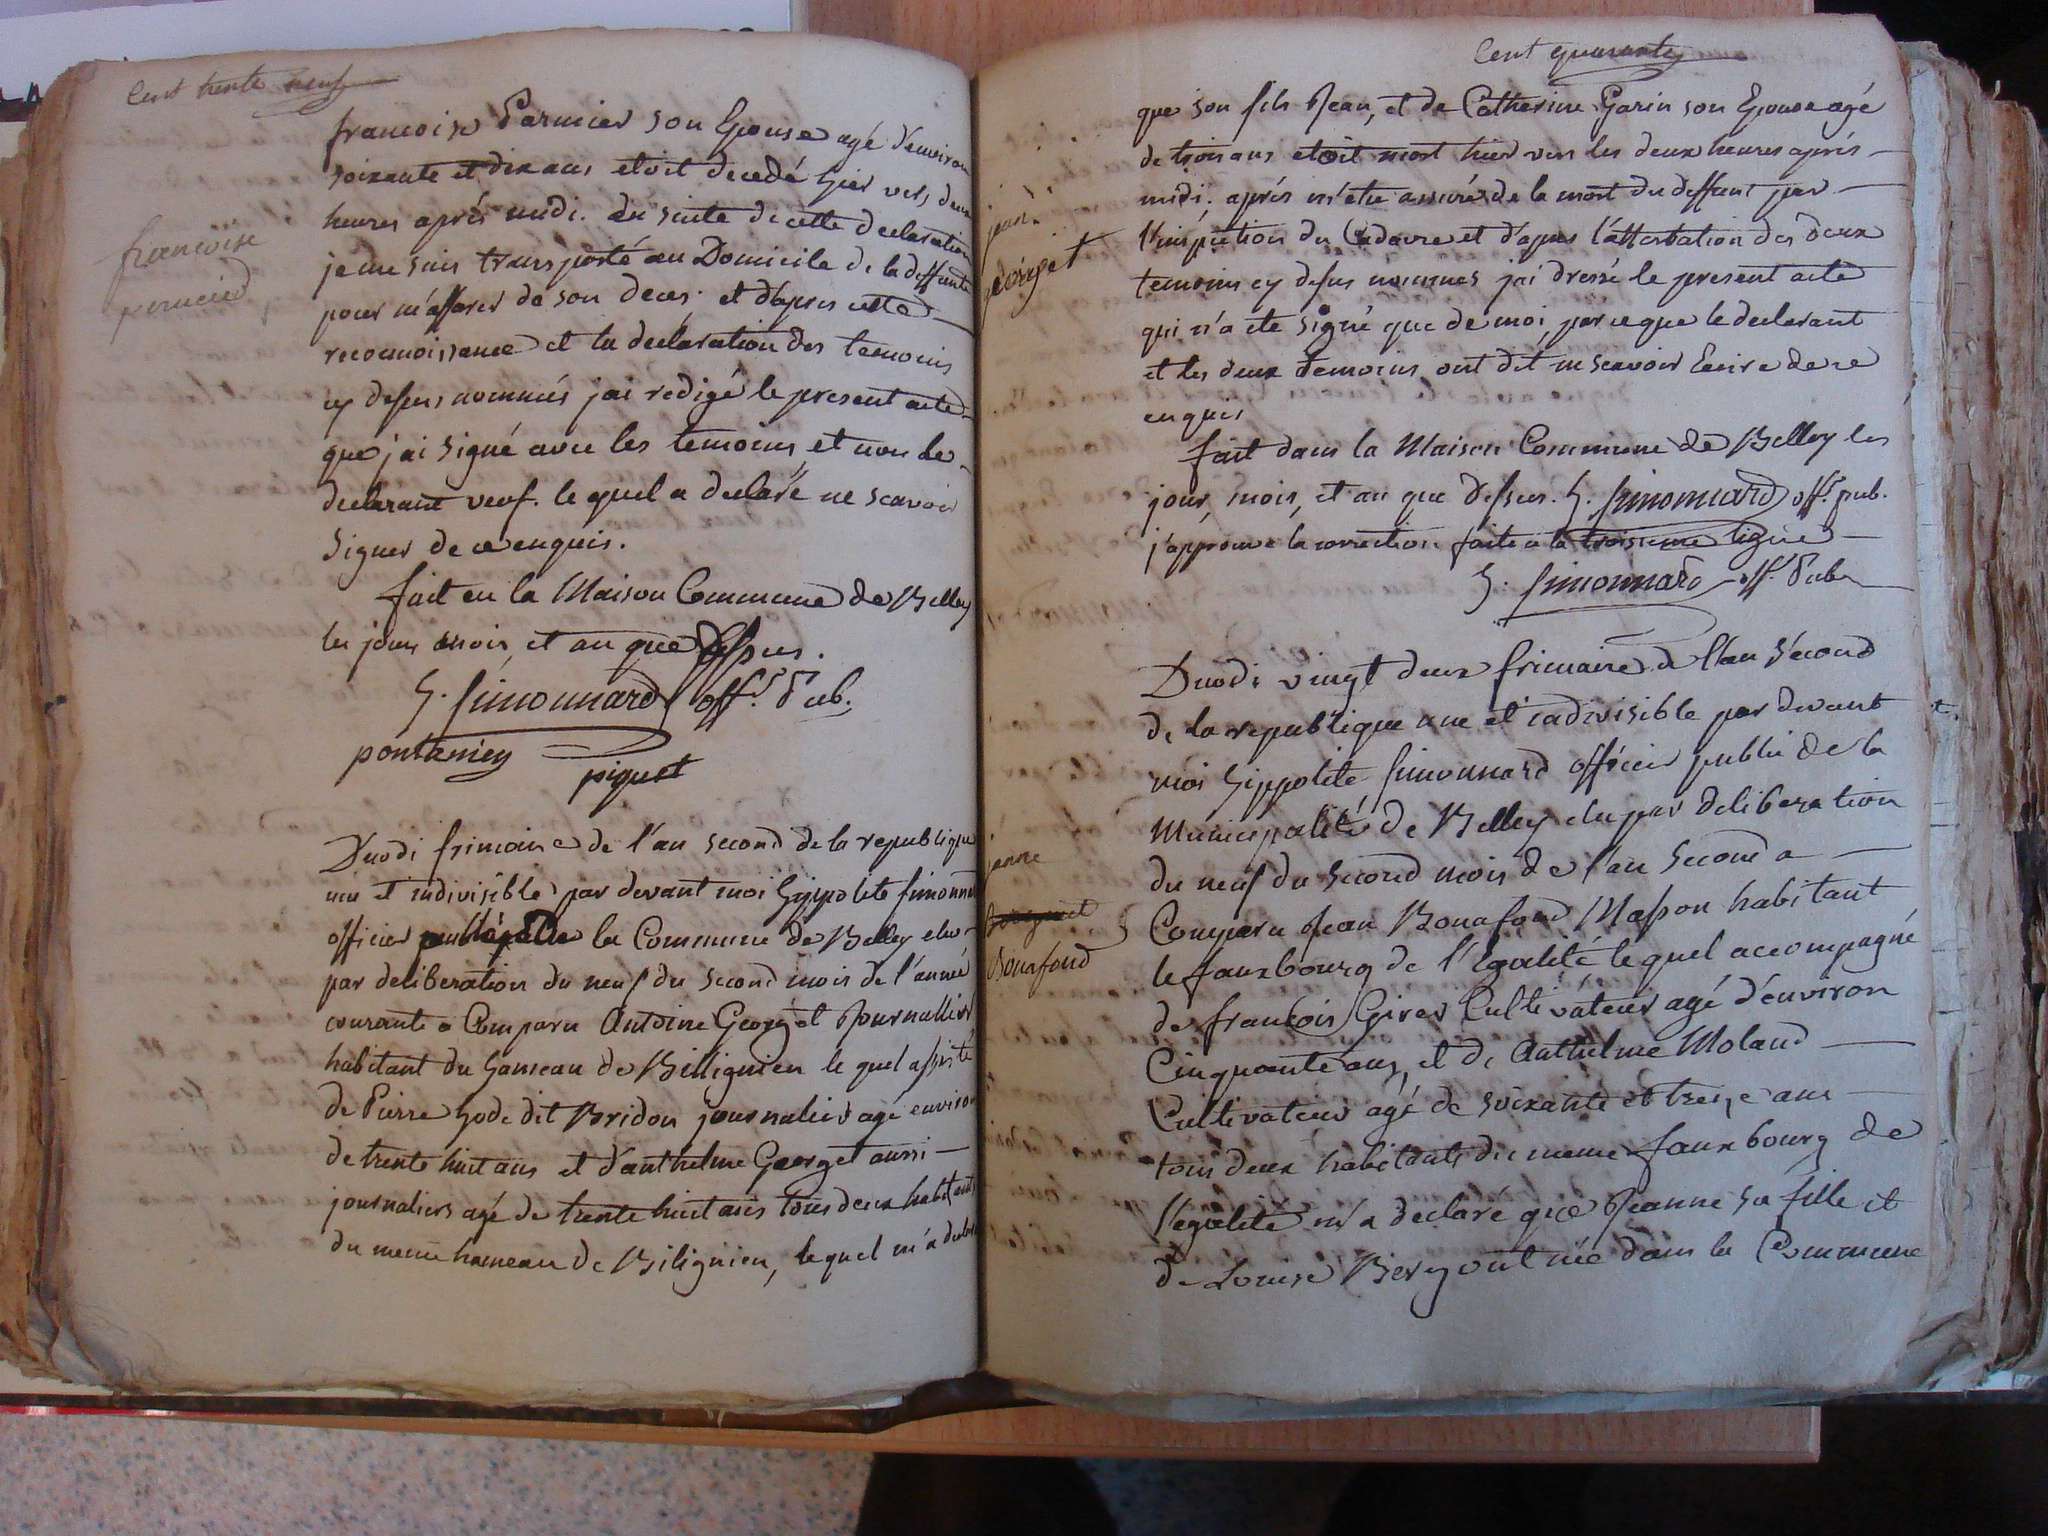 Cent trente neuf
francoise Parmier son Epouse agé d'environ
soixante et dix ans etoit decedé hier vers deux
heures aprés midi. en suite de cette declaration
je me suis transporté au Domicile de la deffunte
pour m'assurer de son deces. et d'apres cette
reconnoissance et la declaration des temoins
cy dessus nommés j'ai redigé le present acte
que j'ai signé avec les temoins et non le
declarant veuf. le quel a declaré ne scavoir
signer de ce enquis.
fait en la Maison Commune de Belley
les jour mois, et an que dessus.
h. Simonnard offr. Pub.
pontanier
piquet
francoise
Duodi frimaire de l'an second de la republique
une et indivisible par devant moi hyppolite Simonnard
officier de la Commune de Belley elu
par deliberation du neuf du second mois de l'année
courante a Comparu Antoine Georget Journallier
habitant du hameau de Billignien le quel assisté
de Pierre hode dit Bridon journalier agé environ
de trente huit ans et d'anthelme Georget aussi
journaliers agé de trente huit ans tous deux habitants
du meme hameau de Bilignien, le quel m'a declaré
Cent quarante
que son fils Jean, et de Catherine Garin son Epouse agé
de trois ans etoit mort hier vers les deux heures aprés
midi. aprés m'etre assuré de la mort du deffunt par
l'inspection du Cadavre et d'apres l'attestation des deux
temoins cy dessus nommes j'ai dressé le present acte
qui n'a ete signé que de moi parce que le declarant
et les deux temoins ont dit ne scavoir Ecrire de ce
enquis
fait dans la Maison Commune de Belley les
jour, mois, et an que dessus. h. Simonnard offr. pub.
j'approuve la correction faite a la troisieme ligne
h. Simonnard off. Pub
jean
georget
Duodi vingt deux frimaire de l'an second
de la republique une et indivisible par devant
moi hyppolite Simonnard officier public de la
Municipalité de Belley elu par deliberation
du neuf du second mois de l'an second a
Comparu Jean Bonafond Masson habitant
le fauxbourg de l'Egalité le quel accompagné
de francois Girer Cultivateur agé d'environ
Cinquante ans, et de Anthelme Moland
Cultivateur agé de soixante et treize ans
tous deux habitants du meme fauxbourg de
l'egalité m'a declaré que Jeanne sa fille et
de Louise Bergout née dans la Commune
janne
Bonafond